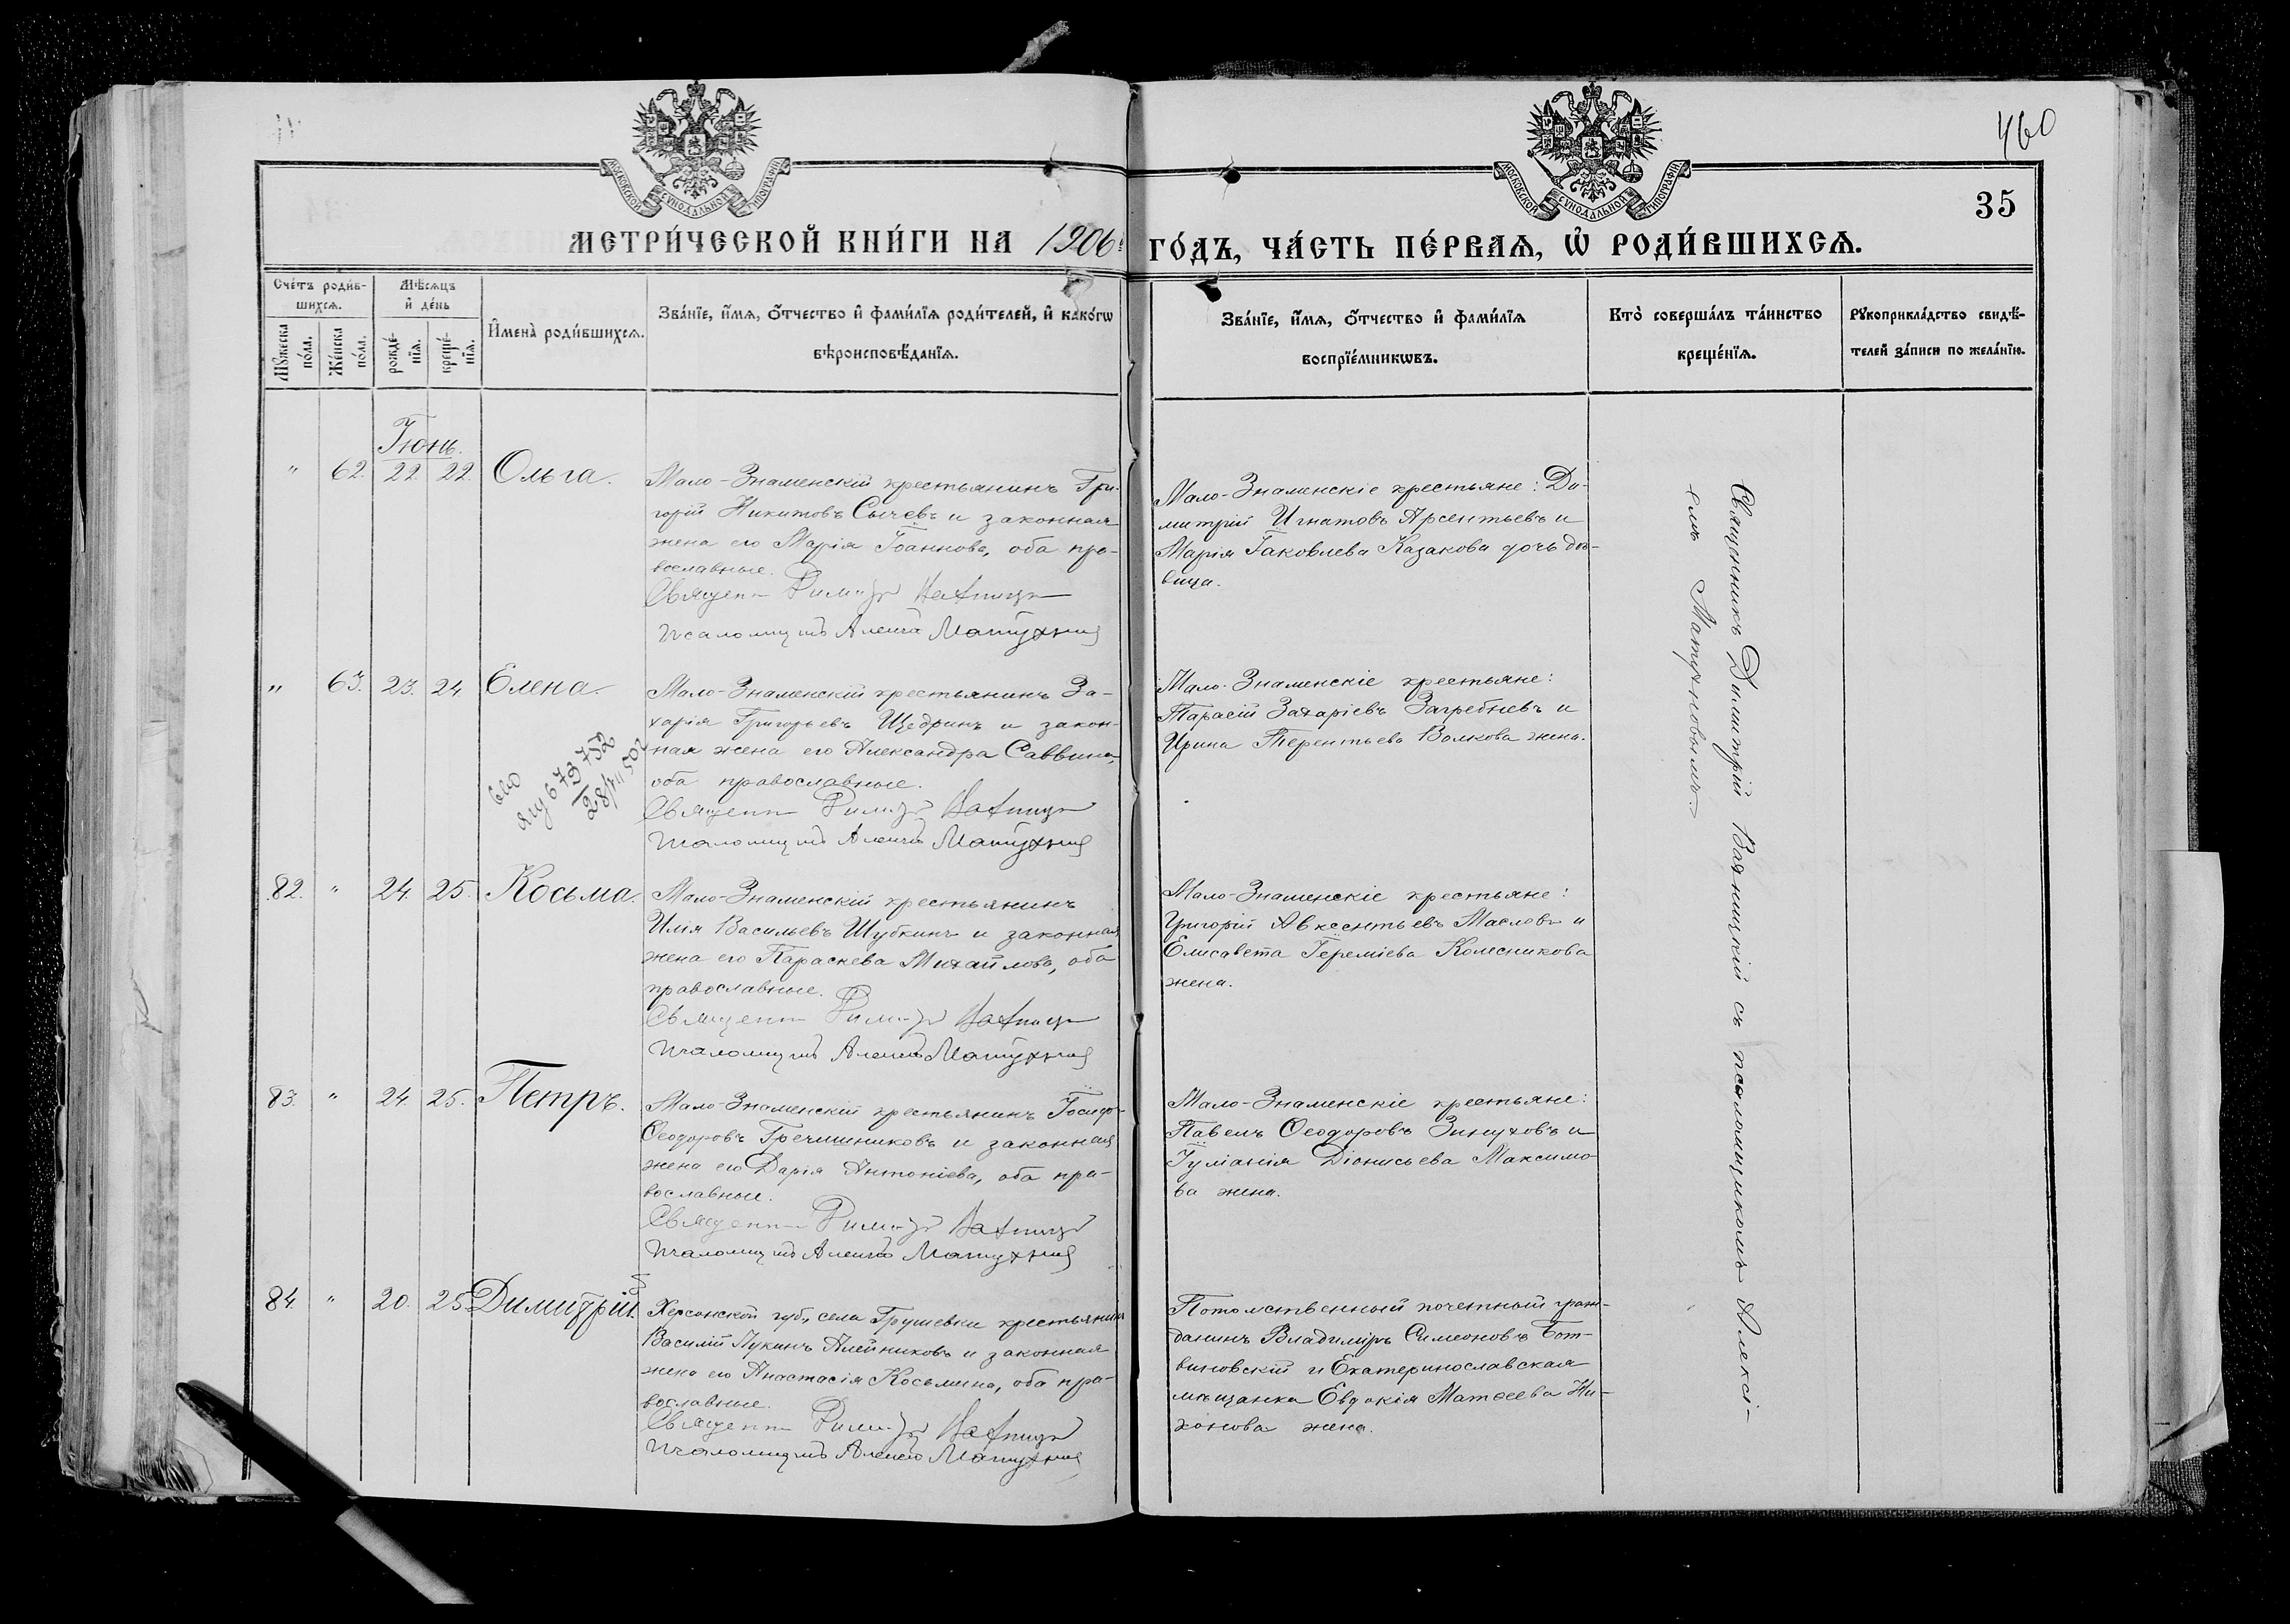 МОСКОВСКОЙ СѴНОДАЛЬНОЙ ТИПОГРАФІИ
МОСКОВСКОЙ СѴНОДАЛЬНОЙ ТИПОГРАФІИ
460
35
МЕТРИ́ЧЕСКОЙ КНИ́ГИ НА 1906 ГО́ДЪ, ЧА́СТЬ ПЕ́РВАѦ, Ѡ҆ РОДИ́ВШИХСѦ.
Сче́тъ роди́в-
шихсѧ.
Мꙋ́жеска по́ла.
Же́нска по́ла.
Мѣ́сѧцъ
и҆ де́нь
рожде́-
нїѧ.
креще́-
нїѧ.
И҆мена̀ роди́вшихсѧ.
Зва́нїе, и҆́мѧ, ѻ҆́тчество и҆ фами́лїѧ роди́телей, и҆ како́гѡ
вѣроисповѣ́данїѧ.
Зва́нїе, и҆́мѧ, ѻ҆́тчество и҆ фами́лїѧ
воспрїе́мникѡвъ.
Кто̀ соверша́лъ та́инство
креще́нїѧ.
Рꙋкоприкла́дство свидѣ́-
телей за́писи по жела́нїю.
Іюнь.
" 62. 22. 22. Ольга.
Мало-Знаменскій крестьянинъ Гри-
горій Никитовъ Сычевъ и законная
жена его Марія Іоаннова, оба пра-
вославные.
Священ Димитр
Псаломщикъ Алексій Матюхинъ
Мало-Знаменскіе крестьяне: Ди-
митрій Игнатовъ Арсентьевъ и
Марія Іаковлева Казакова дочь дѣ-
вица.
Священникъ Димитрій Вахницкій съ псаломщикомъ Алексі-
емъ Матюхновымъ.
" 63. 23. 24 Елена.
Мало-Знаменскій крестьянинъ За-
харія Григорьевъ Щедринъ и закон-
ная жена его Александра Саввина,
оба православные.
Священ Димитр
Псаломщикъ Алексій Матюхинъ
Мало-Знаменскіе крестьяне:
Тарасій Захаріевъ Загребневъ и
Ирина Терентьева Волкова жена.
82. " 24. 25. Косьма.
Мало-Знаменскій крестьянинъ
Илія Васильевъ Шубкинъ и законная
жена его Параскева Михайлова, оба
православные.
Священ Димитр
Псаломщикъ Алексій Матюхинъ
Мало-Знаменскіе крестьяне:
Григорій Авксентьевъ Масловъ и
Елисавета Іереміева Колесникова
жена.
83. " 24. 25. Петръ.
Мало-Знаменскій крестьянинъ
Ѳеодоровъ Гречишниковъ и законная
жена его Дарія Антоніева, оба пра-
вославные.
Священ Димитр
Псаломщикъ Алексій Матюхинъ
Мало-Знаменскіе крестьяне:
Павелъ Ѳеодоровъ Зинуховъ и
Іуліанія Діонисьева Максимо-
ва жена.
84. " 20. 25. Димитрій.
Херсонской губ., села Грушевки крестьянинъ
Василій Лукинъ Алейниковъ и законная
жена его Анастасія Косьмина, оба пра-
вославные.
Священ Димитр
Псаломщикъ Алексій Матюхинъ
Потомственный почетный граж-
данинъ Владиміръ Симеоновъ Бот-
виновскій и Екатеринославская
мѣщанка Евдокія Матѳеева Ни-
конова жена.